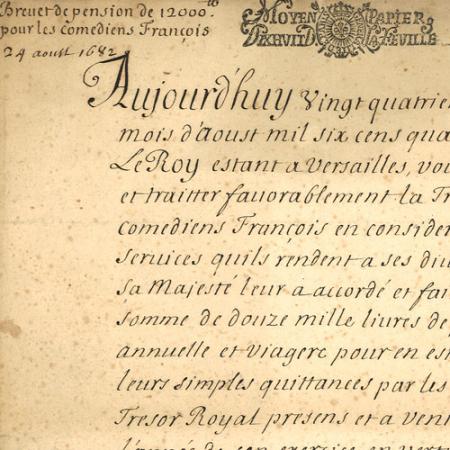 Brevet de pension de 12000.tt
pour les comediens François
24 aoust 1682
MOYEN PAPIER
Aujourd'huy Vingt quatrie
mois d'aoust mil six cens qua
Le Roy estant a Versailles, vou
et traitter favorablement la Tr
comediens François en consider
services quils rendent a ses div
sa Majesté leur à accordé et fai
somme de douze mille livres de
annuelle et viagere pour en est
leurs simples quittances par les
Tresor Royal presens et a veni
l'année de son exercice en vert